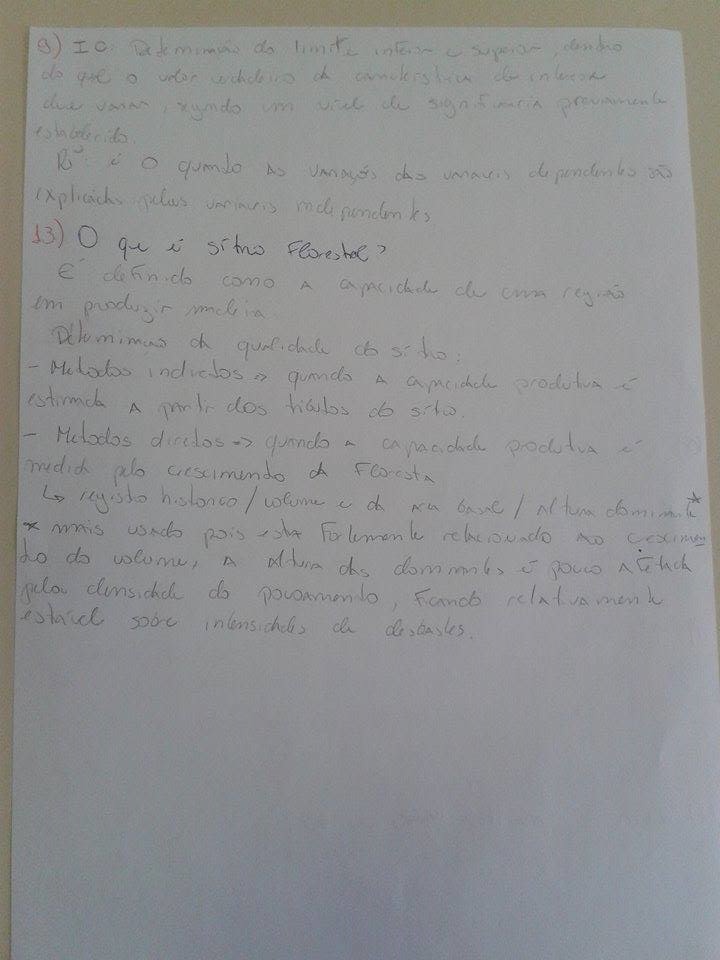 9) IC: Determinação do limite inferior e superior, dentro
do qual o valor verdadeiro da característica de interesse
deve variar, segundo um nível de significancia previamente
estabelecido.
R²: é o quando as variações das variaveis dependentes são
explicadas pelas variaveis independentes
13) O que é sítio Florestal?
É definido como a capacidade de uma região
em produzir madeira.
Determinação da qualidade do sítio:
- Metodos indiretos => quando a capacidade produtiva é
estimada a partir dos do sítio.
- Metodos diretos => quando a capacidade produtiva é
medida pelo crescimento da Floresta
↳ registro historico / volume e da area basal / Altura dominante *
* mais usado pois esta Fortemente relacionado ao crescimen
to do volume, a altura das dominantes é pouco afetada
pela densidade do povoamento, Ficando relativamente
estavel sobre intensidades de desbastes.